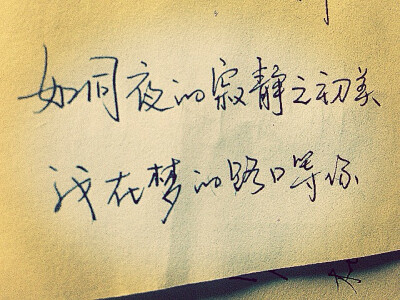 如何夜的寂静之初美
我在梦的路口等你